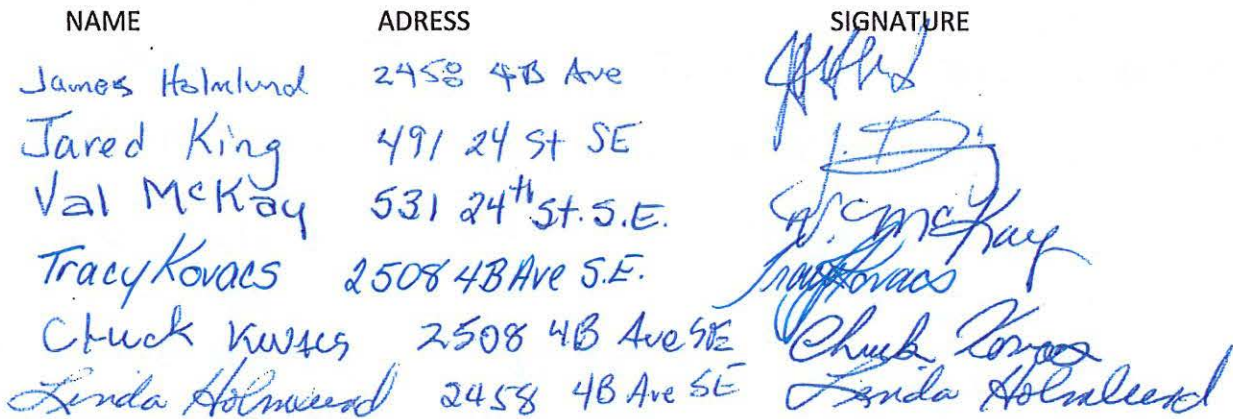 NAME ADRESS SIGNATURE
James Holmlund 2458 4B Ave
Jared King 491 24 St SE
Val McKay 531 24th St. S.E. V. McKay
Tracy Kovacs 2508 4B Ave S.E. Tracy Kovacs
Chuck Kovacs 2508 4B Ave SE Chuck Kovacs
Linda Holmlund 2458 4B Ave SE Linda Holmlund